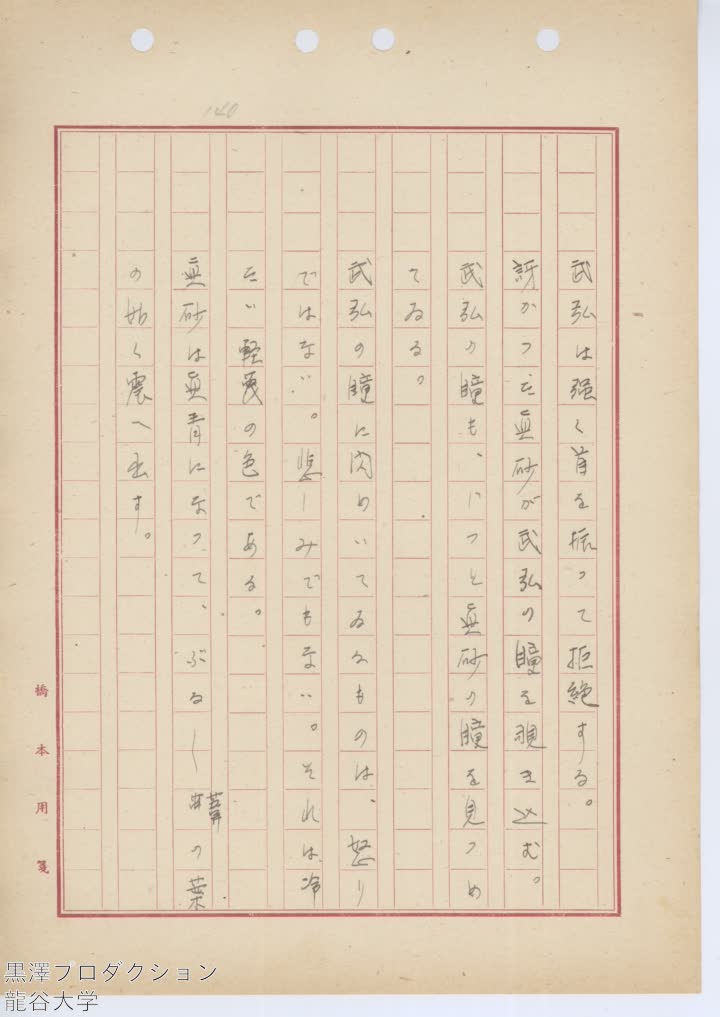 140
武弘は强く首を振って拒絶する。
訝かつた眞砂が武弘の瞳を覗き込む。
武弘の瞳も、ぢつと眞砂の瞳を見つめ
てゐる。
武弘の瞳に閃めいてゐるものは、怒り
ではない。悲しみでもない。それは冷
たい軽蔑の色である。
眞砂は眞青になつて、ぶる〳〵葦の葉
の如く震へ出す。
橋本用箋
黒澤プロダクション
龍谷大学